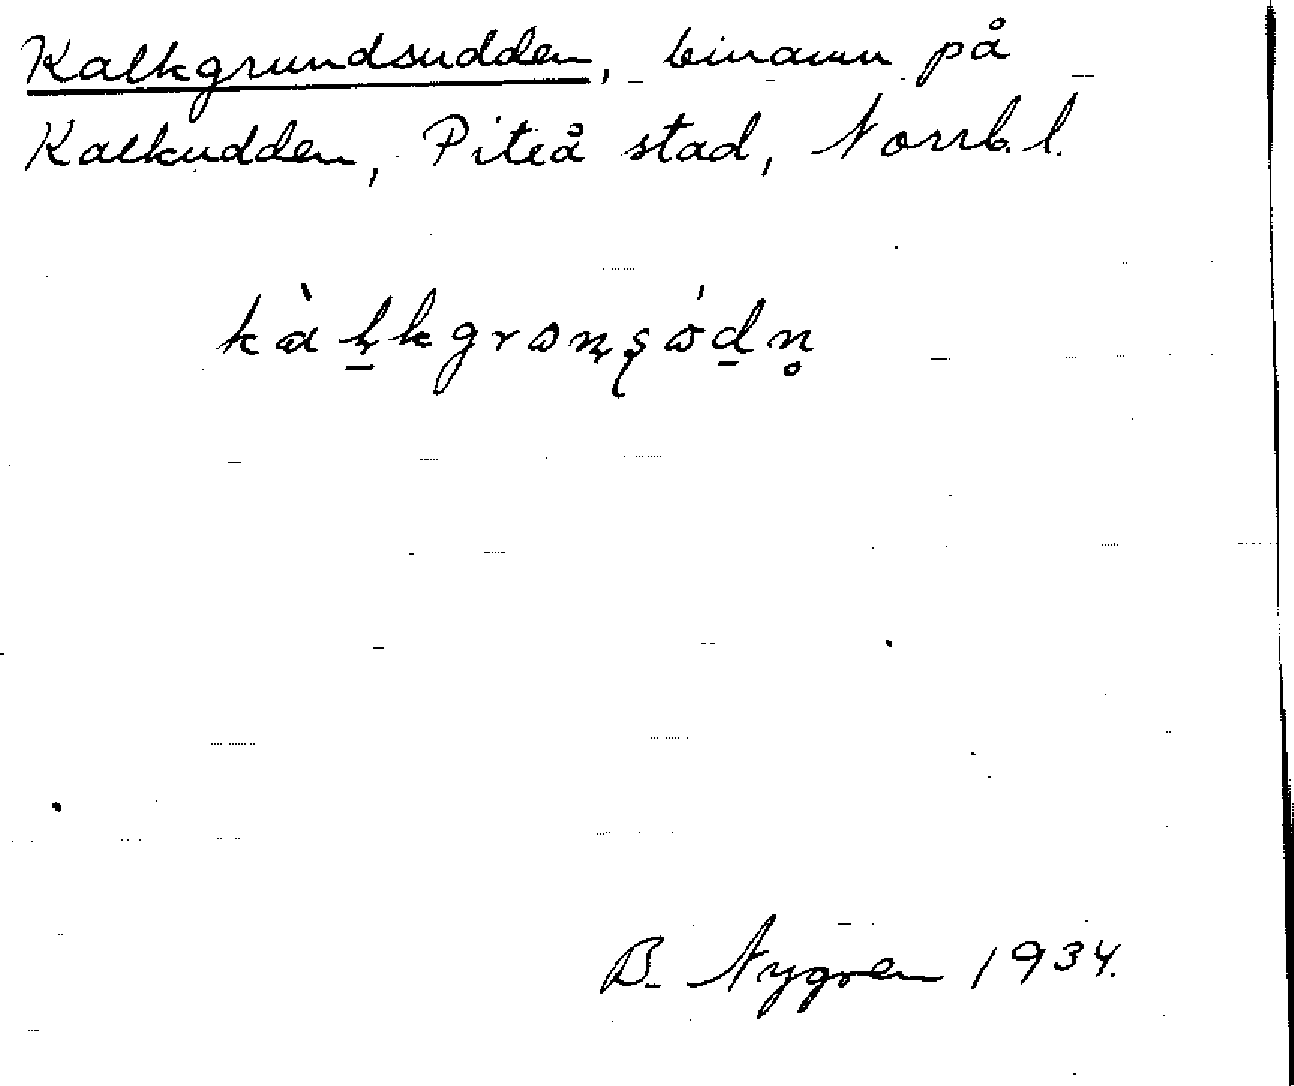 Kalkgrundsudden, binamn på
Kalkudden, Piteå stad, Norrb. l.
kàḻkgrɷn̢ʂɷ́ḏn̥
B. Nygren 1934.